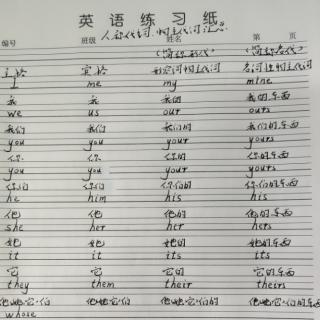 英语练习纸
人称代词、物主代词汇总
编号 班级 姓名 第 页
(简称形代) (简称名代)
主格 宾格 形容词物主代词 名词性物主代词
I me my mine
我 我 我的 我的东西
we us our ours
我们 我们 我们的 我们的东西
you you your yours
你 你 你的 你的东西
you you your yours
你们 你们 你们的 你们的东西
he him his his
他 他 他的 他的东西
she her her hers
她 她 她的 她的东西
it it its its
它 它 它的 它的东西
they them their theirs
他她它们 他她它们 他她它们的 他她它们的东西
whose